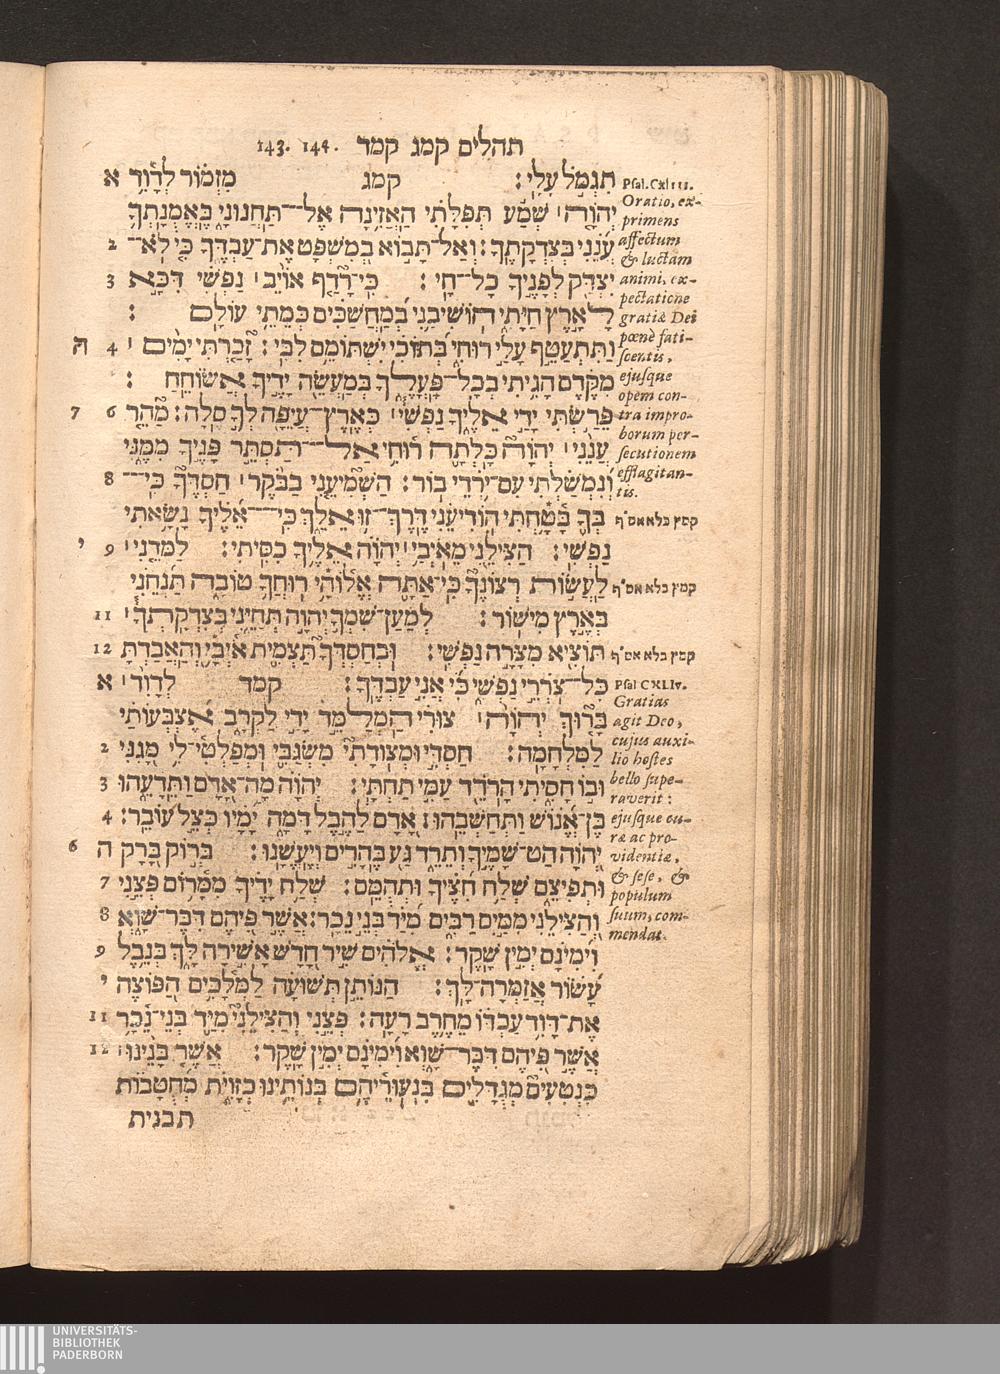 תהלים קמג קמד 143. 144.
תִּגְמֹל עָלָי: קמג מִזְמוֹר לְדָוִד א
יְהוָה שְׁמַע תְּפִלָּתִי הַאֲזִינָה אֶל־תַּחֲנוּנַי בֶּאֱמֻנָתְךָ
עֲנֵנִי בְּצִדְקָתֶךָ: וְאַל־תָּבוֹא בְמִשְׁפָּט אֶת־עַבְדֶּךָ כִּי לֹא־ 2
יִצְדַּק לְפָנֶיךָ כָל־חָי: כִּי־רָדַף אוֹיֵב נַפְשִׁי דִּכָּא 3
לָאָרֶץ חַיָּתִי הוֹשִׁיבַנִי בְמַחֲשַׁכִּים כְּמֵתֵי עוֹלָם:
וַתִּתְעַטֵּף עָלַי רוּחִי בְּתוֹכִי יִשְׁתּוֹמֵם לִבִּי: זָכַרְתִּי יָמִים 4 ה
מִקֶּדֶם הָגִיתִי בְכָל־פָּעֳלֶךָ בְּמַעֲשֵׂה יָדֶיךָ אֲשׂוֹחֵחַ:
פֵּרַשְׂתִּי יָדַי אֵלֶיךָ נַפְשִׁי כְּאֶרֶץ־עֲיֵפָה לְךָ סֶלָה: מַהֵר 6 7
עֲנֵנִי יְהוָה כָּלְתָה רוּחִי אַל־תַּסְתֵּר פָּנֶיךָ מִמֶּנִּי
וְנִמְשַׁלְתִּי עִם־יֹרְדֵי בוֹר: הַשְׁמִיעֵנִי בַבֹּקֶר חַסְדֶּךָ כִּי־ 8
בְךָ בָטָחְתִּי הוֹדִיעֵנִי דֶּרֶךְ־זוּ אֵלֵךְ כִּי־אֵלֶיךָ נָשָׂאתִי
נַפְשִׁי: הַצִּילֵנִי מֵאֹיְבַי יְהוָה אֵלֶיךָ כִסִּיתִי: לַמְּדֵנִי 9 י
לַעֲשׂוֹת רְצוֹנֶךָ כִּי־אַתָּה אֱלוֹהָי רוּחֲךָ טוֹבָה תַּנְחֵנִי
בְּאֶרֶץ מִישׁוֹר: לְמַעַן־שִׁמְךָ יְהוָה תְּחַיֵּנִי בְּצִדְקָתְךָ 11
תּוֹצִיא מִצָּרָה נַפְשִׁי: וּבְחַסְדְּךָ תַּצְמִית אֹיְבָי וְהַאֲבַדְתָּ 12
כָּל־צֹרֲרֵי נַפְשִׁי כִּי אֲנִי עַבְדֶּךָ: קמד לְדָוִד א
בָּרוּךְ יְהוָה צוּרִי הַמְלַמֵּד יָדַי לַקְרָב אֶצְבְּעוֹתַי
לַמִּלְחָמָה: חַסְדִּי וּמְצוּדָתִי מִשְׂגַּבִּי וּמְפַלְטִי־לִי מָגִנִּי 2
וּבוֹ חָסִיתִי הָרֹדֵד עַמִּי תַחְתָּי: יְהוָה מָה־אָדָם וַתֵּדָעֵהוּ 3
בֶּן־אֱנוֹשׁ וַתְּחַשְּׁבֵהוּ: אָדָם לַהֶבֶל דָּמָה יָמָיו כְּצֵל עוֹבֵר: 4
יְהוָה הַט־שָׁמֶיךָ וְתֵרֵד גַּע בֶּהָרִים וְיֶעֱשָׁנוּ: בְּרוֹק בָּרָק ה 6
וּתְפִיצֵם שְׁלַח חִצֶּיךָ וּתְהֻמֵּם: שְׁלַח יָדֶיךָ מִמָּרוֹם פְּצֵנִי 7
וְהַצִּילֵנִי מִמַּיִם רַבִּים מִיַּד בְּנֵי נֵכָר: אֲשֶׁר פִּיהֶם דִּבֶּר־שָׁוְא 8
וִימִינָם יְמִין שָׁקֶר: אֱלֹהִים שִׁיר חָדָשׁ אָשִׁירָה לָּךְ בְּנֵבֶל 9
עָשׂוֹר אֲזַמְּרָה־לָּךְ: הַנּוֹתֵן תְּשׁוּעָה לַמְּלָכִים הַפּוֹצֶה י
אֶת־דָּוִד עַבְדּוֹ מֵחֶרֶב רָעָה: פְּצֵנִי וְהַצִּילֵנִי מִיַּד בְּנֵי־נֵכָר 11
אֲשֶׁר פִּיהֶם דִּבֶּר־שָׁוְא וִימִינָם יְמִין שָׁקֶר: אֲשֶׁר בָּנֵינוּ 12
כִּנְטִעִים מְגֻדָּלִים בִּנְעוּרֵיהֶם בְּנוֹתֵינוּ כְזָוִיֹּת מְחֻטָּבוֹת
תבנית
Psal. Cxliii.
Oratio, ex-
primens
affectum
& luctam
animi, ex-
pectatione
gratiæ Dei
pœnè fati-
scentis,
ejusque
opem con-
tra impro-
borum per-
secutionem
efflagitan-
tis.
קמץ בלא אס״ף
קמץ בלא אס״ף
קמץ בלא אס״ף
Psal CXLIv.
Gratias
agit Deo,
cujus auxi-
lio hostes
bello supe-
raverit:
ejusque cu-
ræ ac pro-
videntiæ,
& sese, &
populum
suum, com-
mendat.
UNIVERSITÄTS-
BIBLIOTHEK
PADERBORN